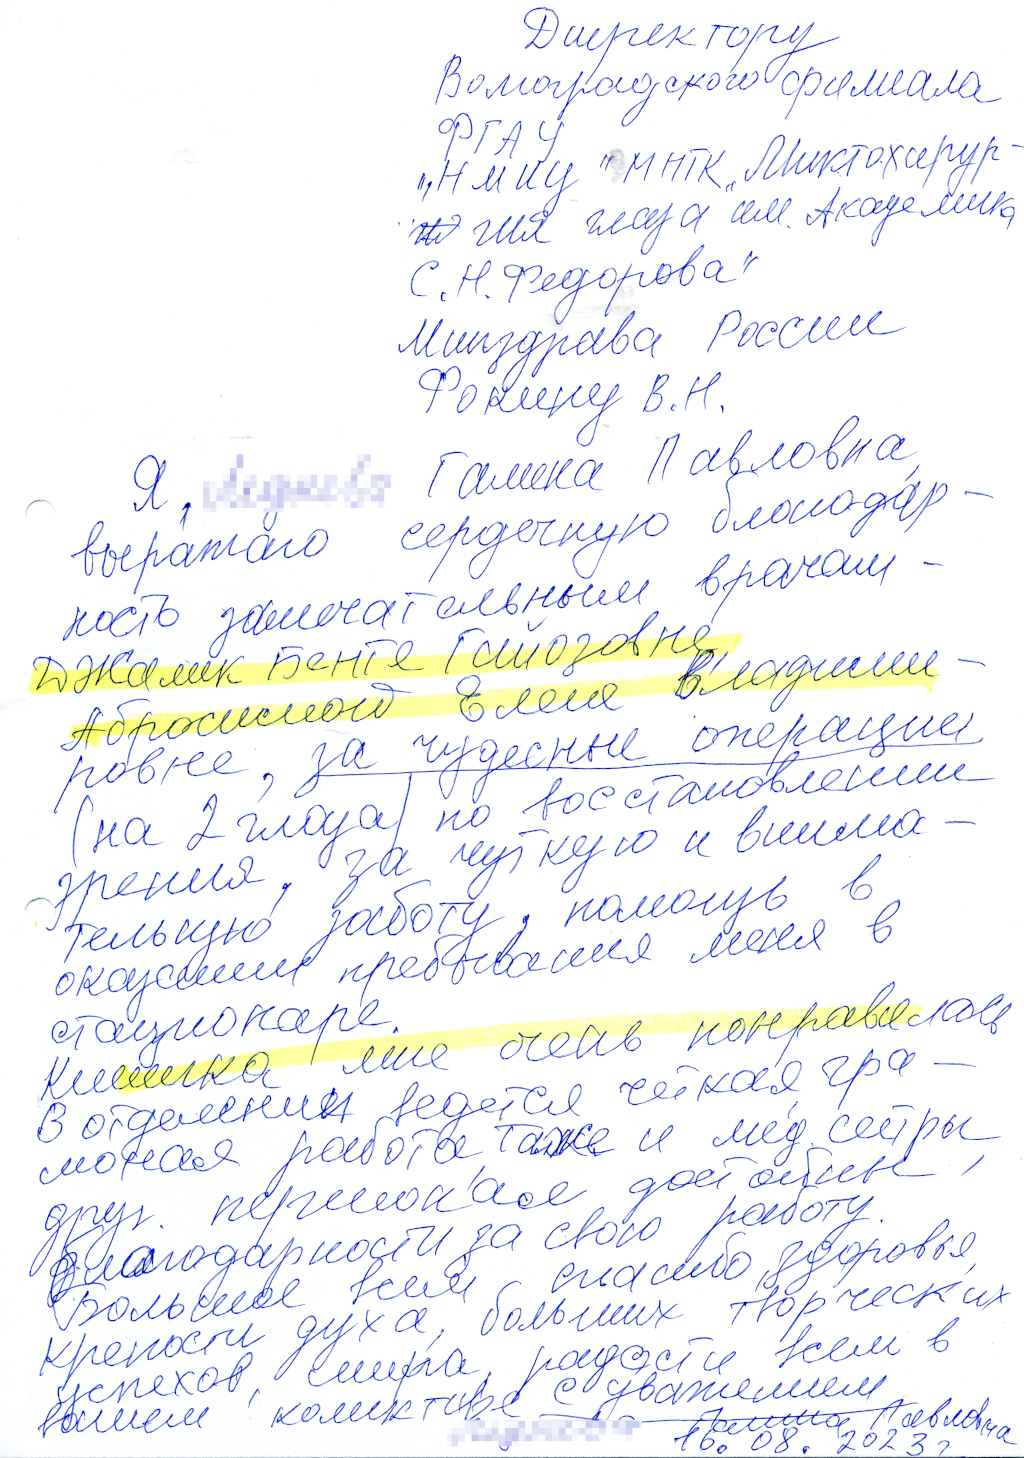 Директору
Волгоградского филиала
ФГАУ
"НМИЦ "МНТК "Миктохирур-
гия глаза им. Академика
С.Н.Федорова"
Минздрава России
Фокину В.Н.
Я, Галина Павловна,
выражаю сердечную благодар-
ность замечательным врачам -
Джамик Бенте Гийозовне,
Абросимовой Елене Владими-
ровне, за чудесные операции
(на 2 глаза) по восстановлении
зрения, за чуткую и внима-
тельную заботу, помощь в
оказании пребывания меня в
стационаре.
Клиника мне очень понравилась
В отделении ведется чёткая, гра-
мотная работа также и мед. сёстры
друг. персонал достойны
благодарности за свою работу.
Большое всем спасибо, здоровья,
крепости духа, больших творческих
успехов, мира, радости всем в
вашем колективе С уважением
Галина Павловна
16.08.2023г